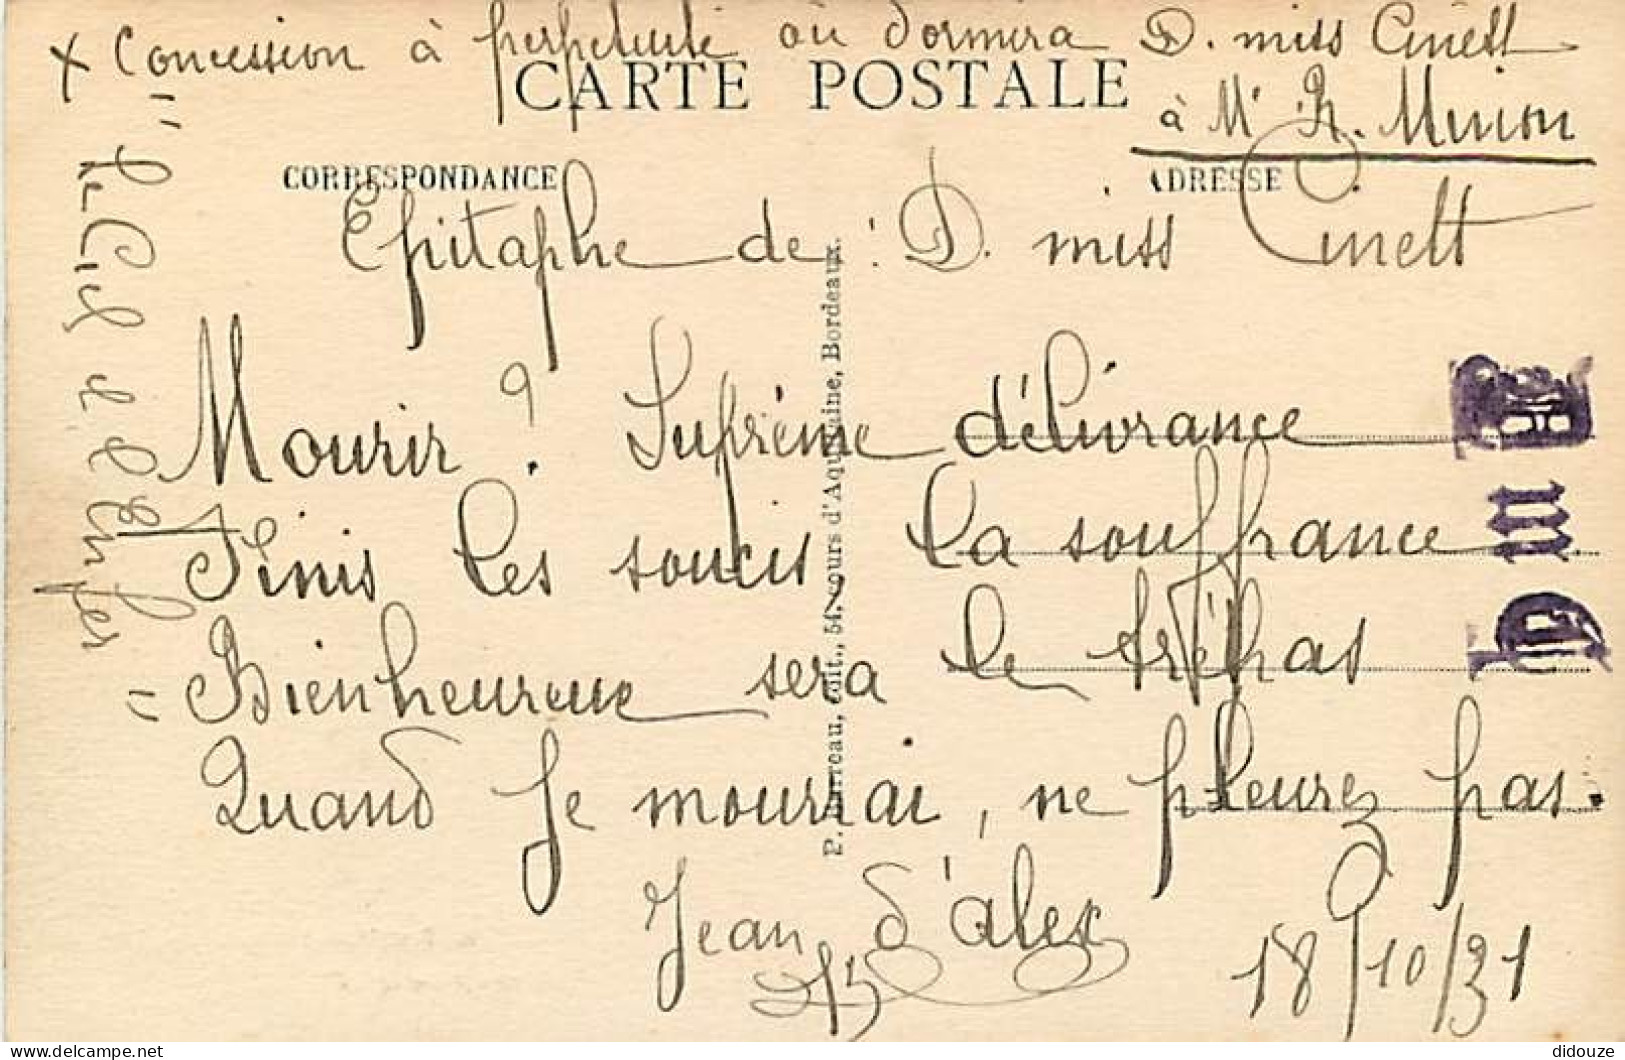 x Concession à perpétuité où dormira D. miss Cinett
CARTE POSTALE
à Mr R. Minion
CORRESPONDANCE
ADRESSE
Epitaphe de : D. miss Cinett
Mourir ? Suprême délivrance
Finis les soucis, la souffrance
Bienheureuse sera le trépas
Quand je mourrai, ne pleurez pas.
Jean d'Alex
18/10/31
" Le Ciel et l'Enfer "
P. Barreau, édit., 54, cours d'Aquitaine, Bordeaux.
D m E
didouze
Delcampe.net